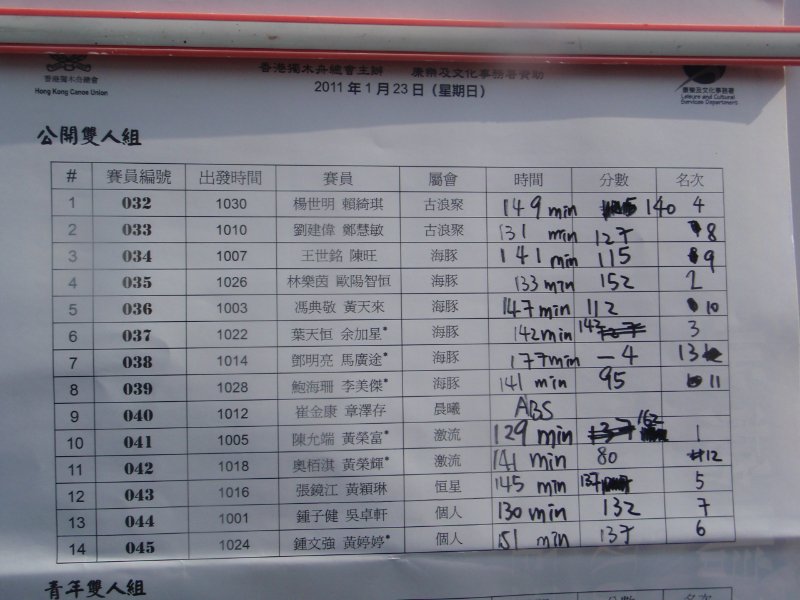 香港獨木舟總會
Hong Kong Canoe Union
香港獨木舟總會主辦 康樂及文化事務署資助
2011 年 1 月 23 日（星期日）
康樂及文化事務署
Leisure and Cultural
Services Department
公開雙人組
# 賽員編號 出發時間 賽員 屬會 時間 分數 名次
1 032 1030 楊世明 賴綺琪 古浪聚 149 min 140 4
2 033 1010 劉建偉 鄭慧敏 古浪聚 131 min 127 8
3 034 1007 王世銘 陳旺 海豚 141 min 115 9
4 035 1026 林樂茵 歐陽智恒 海豚 133 min 152 2
5 036 1003 馮典敬 黃天來 海豚 147 min 112 10
6 037 1022 葉天恒 余加星* 海豚 142 min 143 3
7 038 1014 鄧明亮 馬廣途* 海豚 177 min -4 13
8 039 1028 鮑海珊 李美傑* 海豚 141 min 95 11
9 040 1012 崔金康 章澤存 晨曦 ABS
10 041 1005 陳允端 黃榮富* 激流 129 min 162 1
11 042 1018 奧栢淇 黃榮輝* 激流 141 min 80 12
12 043 1016 張鏡江 黃穎琳 恒星 145 min 137 5
13 044 1001 鍾子健 吳卓軒 個人 130 min 132 7
14 045 1024 鍾文強 黃婷婷* 個人 151 min 137 6
青年雙人組
分數 名次